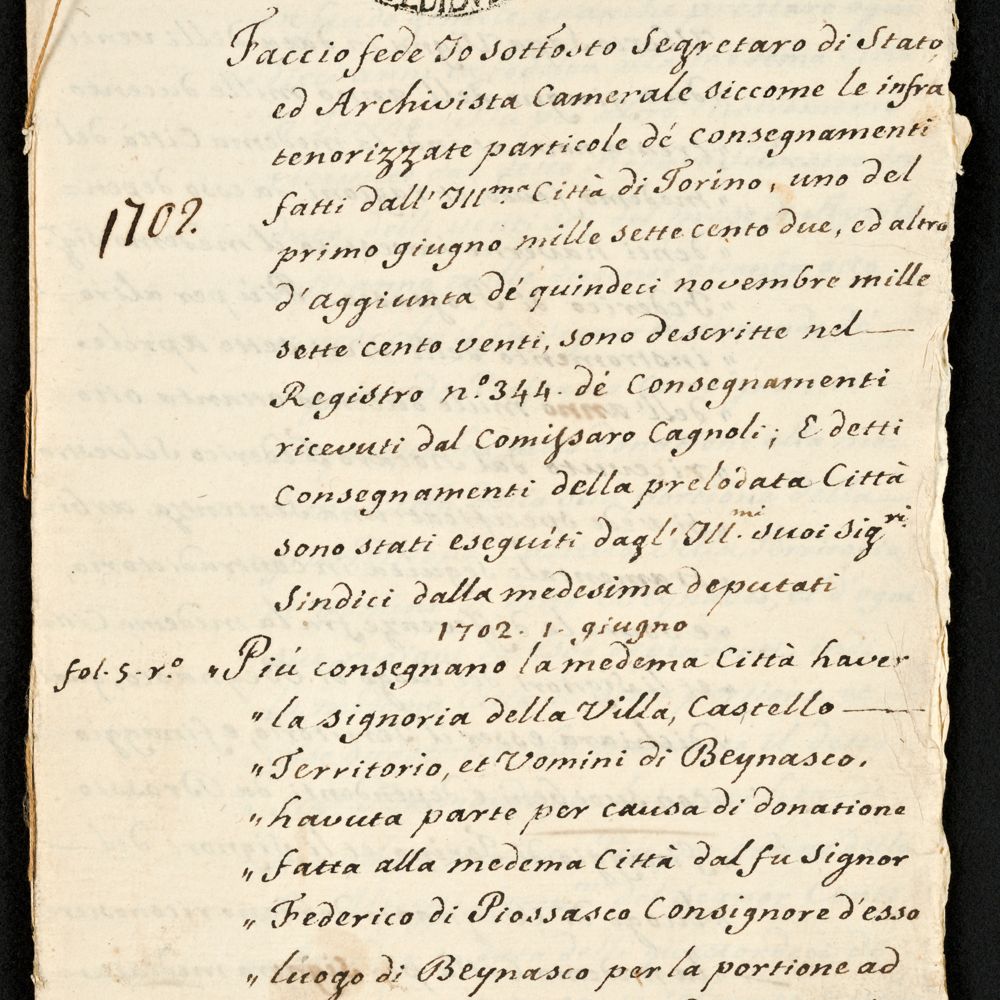 Faccio fede Io sottosto Segretaro di Stato,
ed Archivista Camerale siccome le infra
tenorizzate particole dé Consegnamenti
fatti dall' Ill.ma Città di Torino, uno del
1702.
primo giugno mille sette cento due, ed altro
d'aggiunta dé quindeci novembre mille
sette cento venti, sono descritte nel
Registro n.º 344. dé Consegnamenti
ricevuti dal Comissaro Cagnoli; E detti
Consegnamenti della prelodata Città
sono stati eseguiti dagl' Ill.mi suoi Sig.ri
Sindici dalla medesima deputati
1702. 1. giugno
fol. 5. r.º " Più consegnano la medema Città haver
" la signoria della Villa, Castello
" Territorio, et Uomini di Beynasco.
" havuta parte per causa di donatione
" fatta alla medema Città dal fu Signor
" Federico di Piossasco Consignore d'esso
" luogo di Beynasco per la portione ad